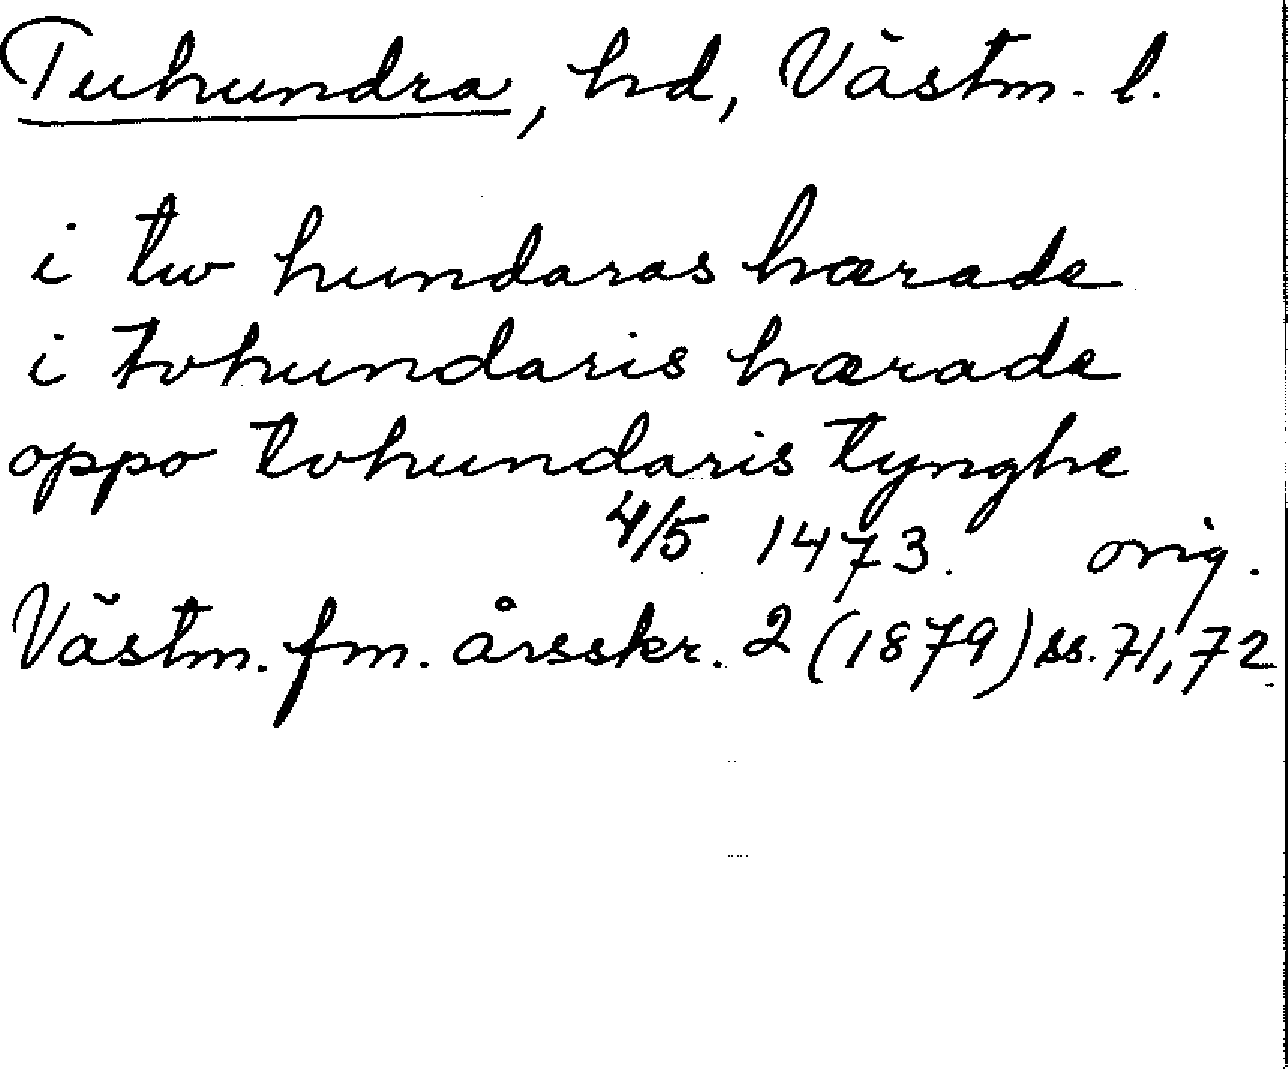 Tuhundra, hd, Västm. l.
i tw hundaras hærade
i tvhundaris hærade
oppo tvhundaris tynghe
4/5 1473. orig.
Västm. fm. årsskr. 2 (1879) ss. 71, 72